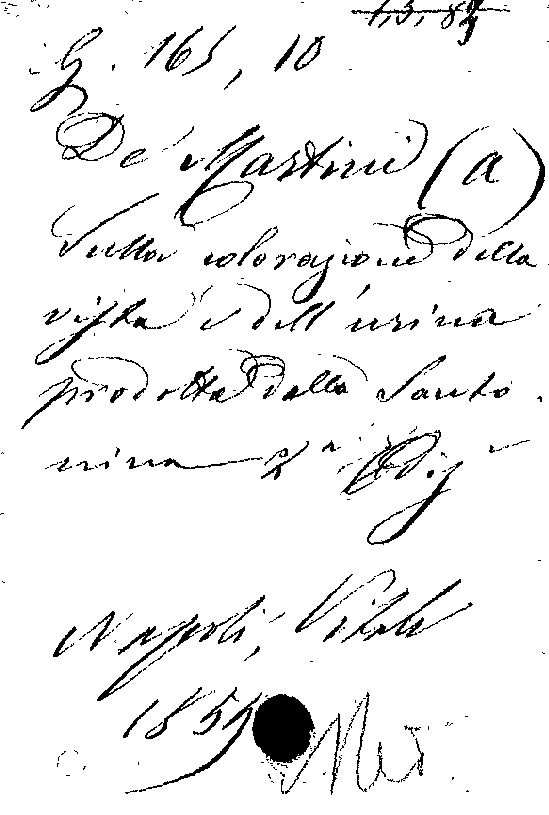 G. 165, 10
De Martini (a)
Sulla colorazione della
vista e dell'urina
prodotta dalla Santo
nina 2a Ediz
Napoli, Vitale